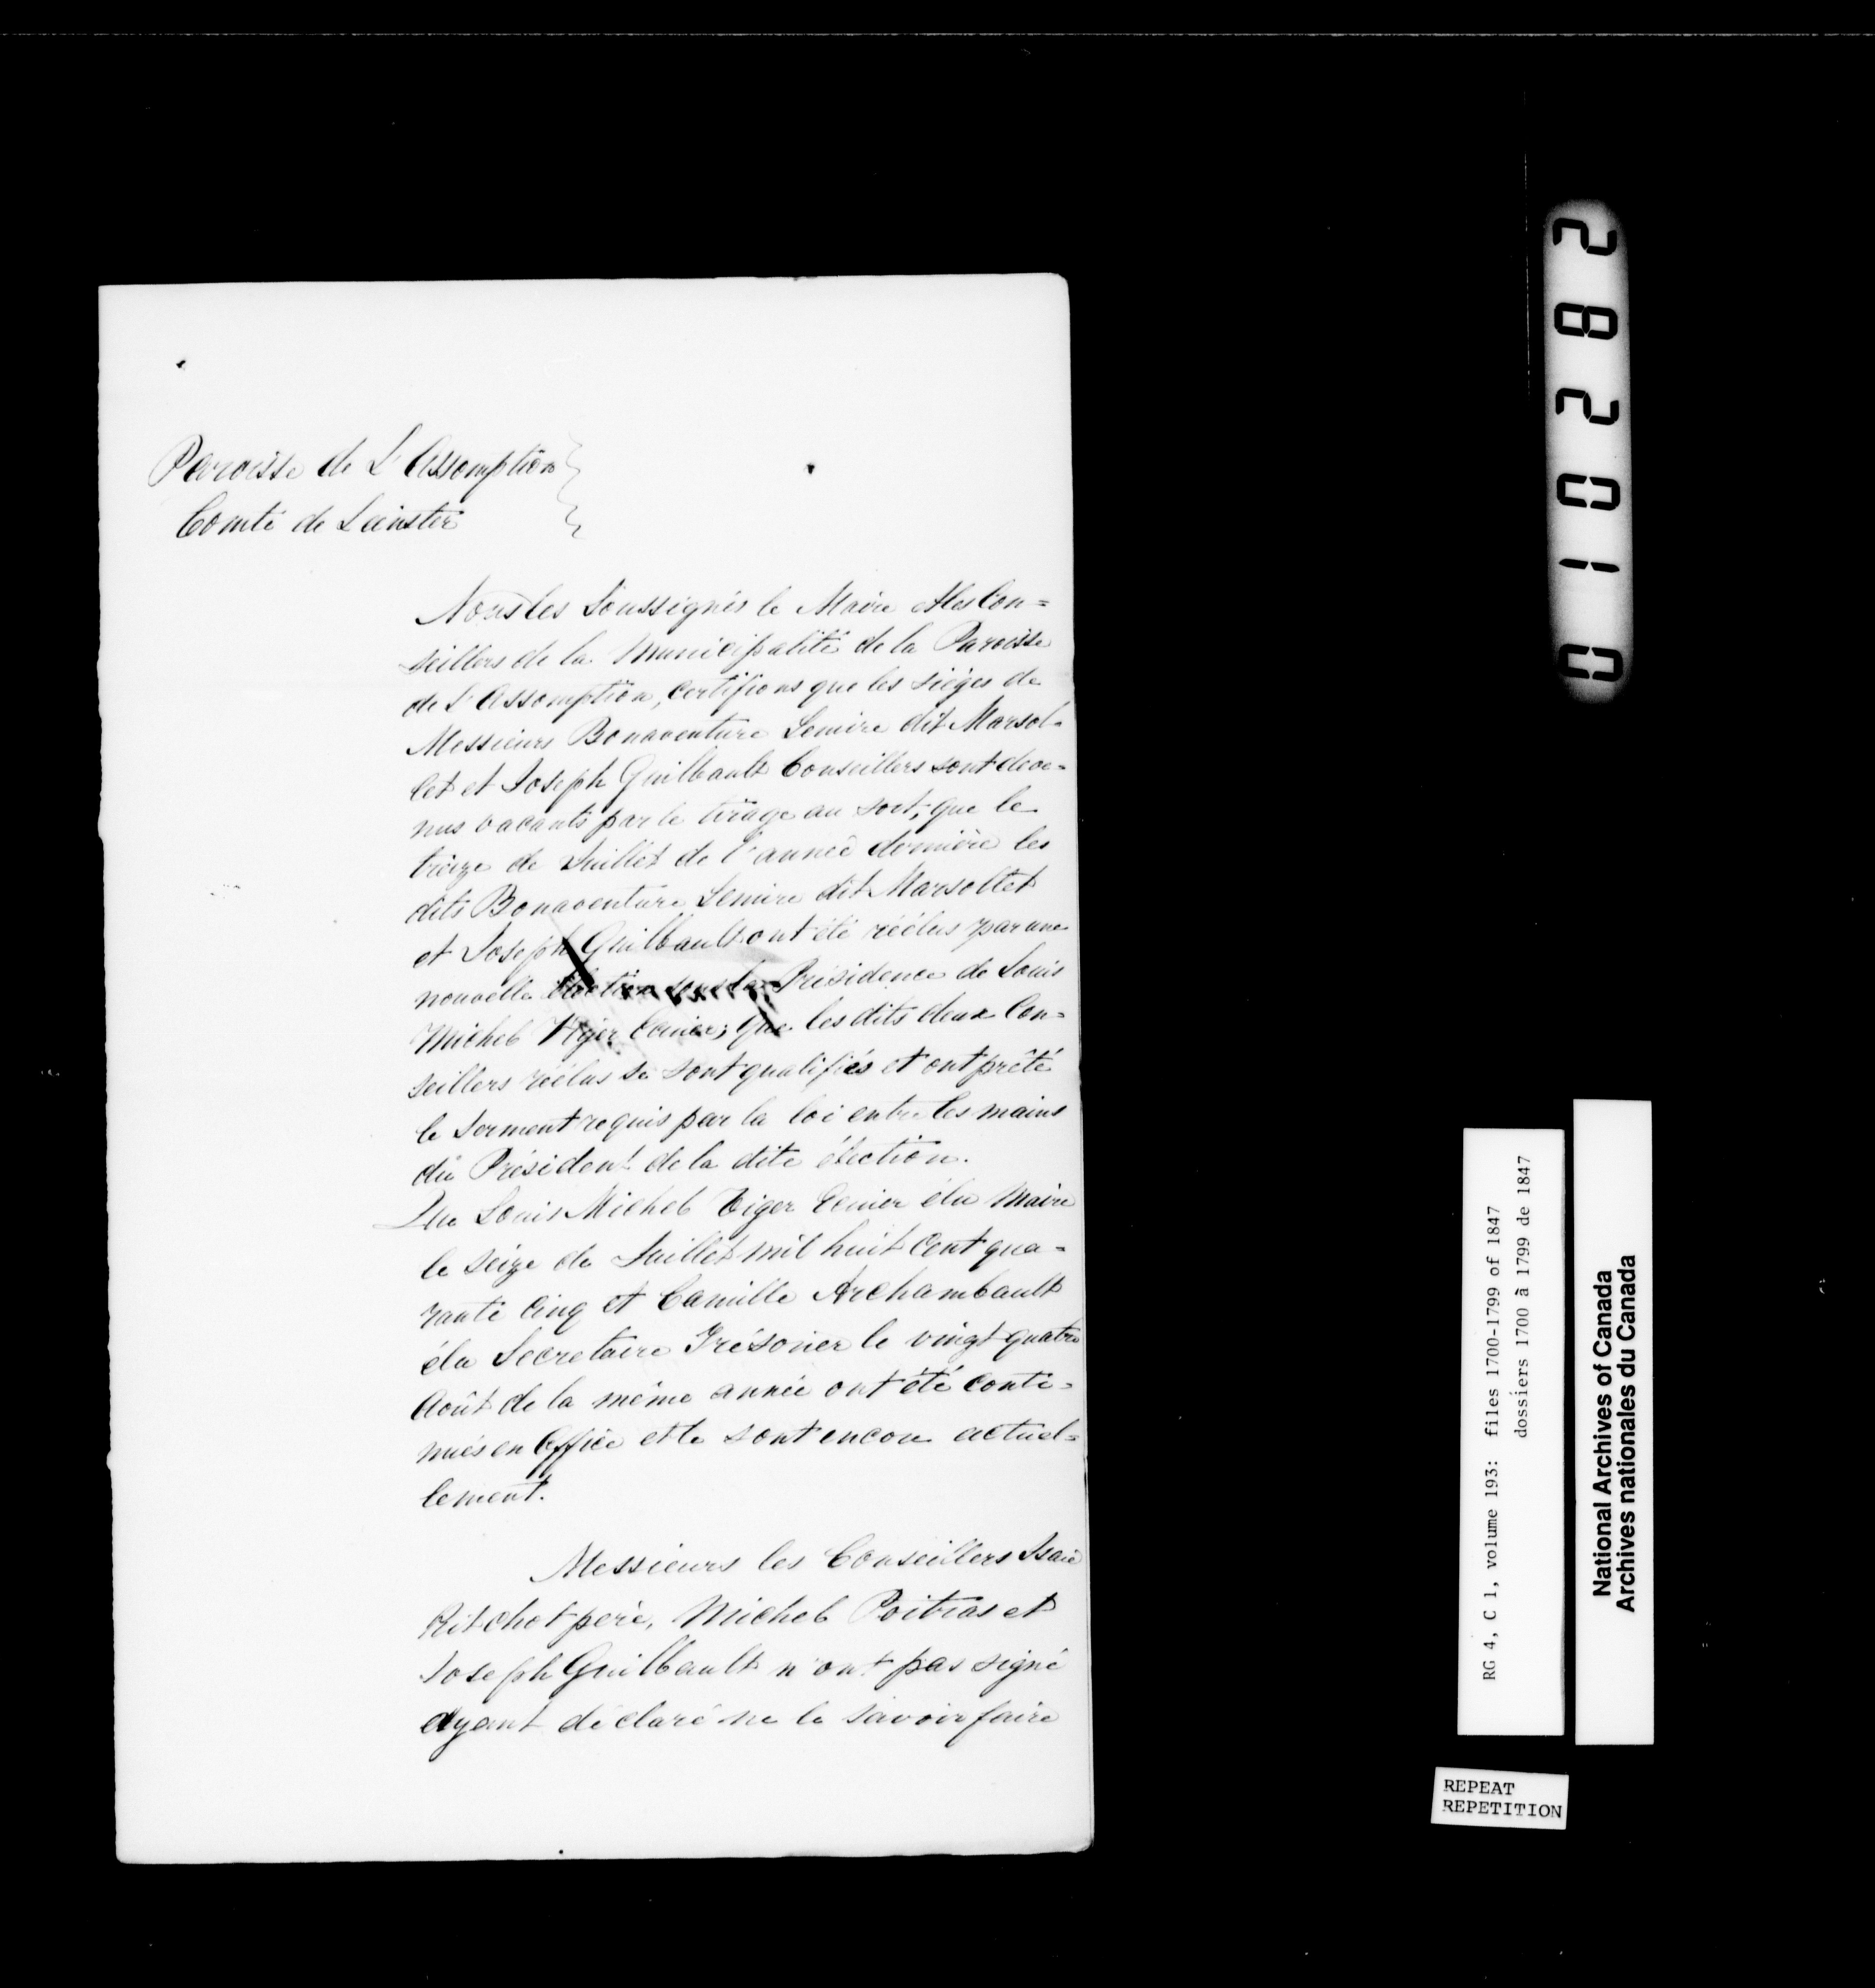 Paroisse de L'Assomption
Comté de Leinster
Nous les Soussignés le Maire et les Con=
seillers de la Municipalité de la Paroisse
de L'Assomption, certifions que les siéges de
Messieurs Bonaventure Lemire dit Marsol=
let et Joseph Guilbault Conseillers sont deve=
nus vacants par le tirage au sort; que le
treize de Juillet de l'année dernière les
dits Bonaventure Lemire dit Marsollet
et Joseph Guilbault ont été réélus par une
nouvelle élection sous la Présidence de Louis
Michel Viger Ecuier; que les dits deux Con=
seillers réélus se sont qualifiés et ont prêté
le serment requis par la loi entre les mains
du Président de la dite élection.
Que Louis Michel Viger Ecuier élu Maire
le seize de Juillet mil huit Cent qua=
rante cinq et Camille Archambault
élu Secretaire Trésorier le vingt quatre
Août de la même année ont été conti=
nués en Office et le sont encore actuel=
lement.
Messieurs les Conseillers Isaie
Ritchot père, Michel Poitras et
Joseph Guilbault n'ont pas signé
ayant déclaré ne le savoir faire
010282
RG 4, C 1, volume 193: files 1700-1799 of 1847
dossiers 1700 à 1799 de 1847
National Archives of Canada
Archives nationales du Canada
REPEAT
REPETITION